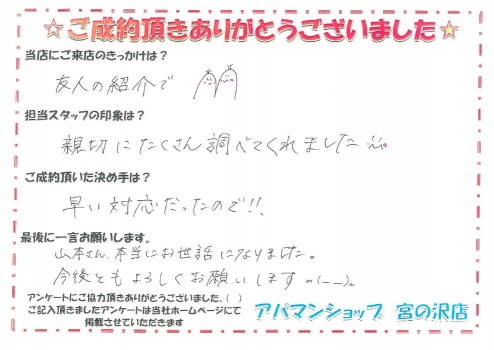 ☆ご成約頂きありがとうございました☆
当店にご来店のきっかけは？
友人の紹介で
担当スタッフの印象は？
親切にたくさん調べてくれました
ご成約頂いた決め手は？
早い対応だったので!!
最後に一言お願いします。
山本さん、本当にお世話になりました。
今後ともよろしくお願いします m(__)m
アンケートにご協力頂きありがとうございました。( )
ご記入頂きましたアンケートは当社ホームページにて
掲載させていただきます
アパマンショップ 宮の沢店